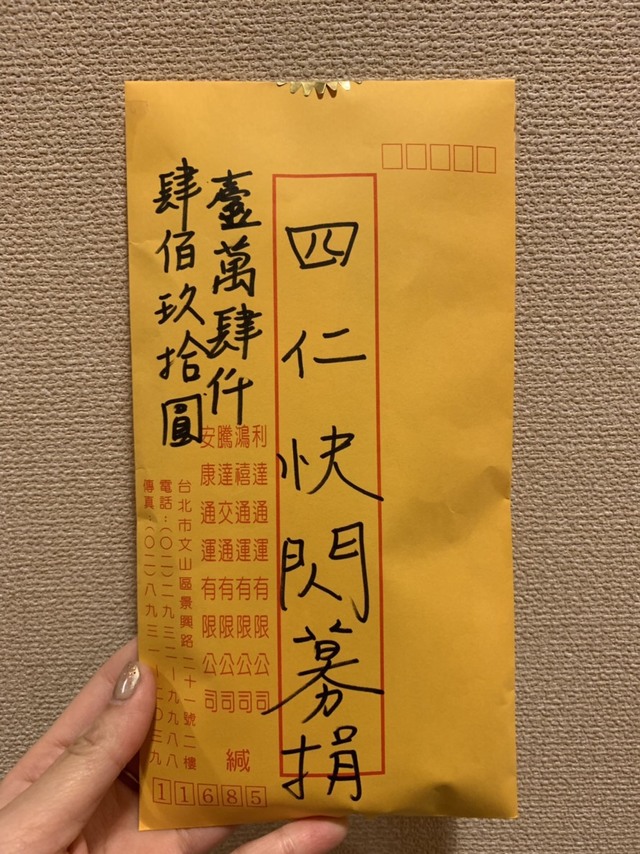 四仁快閃募捐
壹萬肆仟
肆佰玖拾圓
利達通運有限公司
鴻禧通運有限公司
騰達交通有限公司
安康通運有限公司
緘
台北市文山區景興路二十一號二樓
電話：(〇二)二九三二–九九八八
傳真：(〇二)八九三
二〇三九
11685